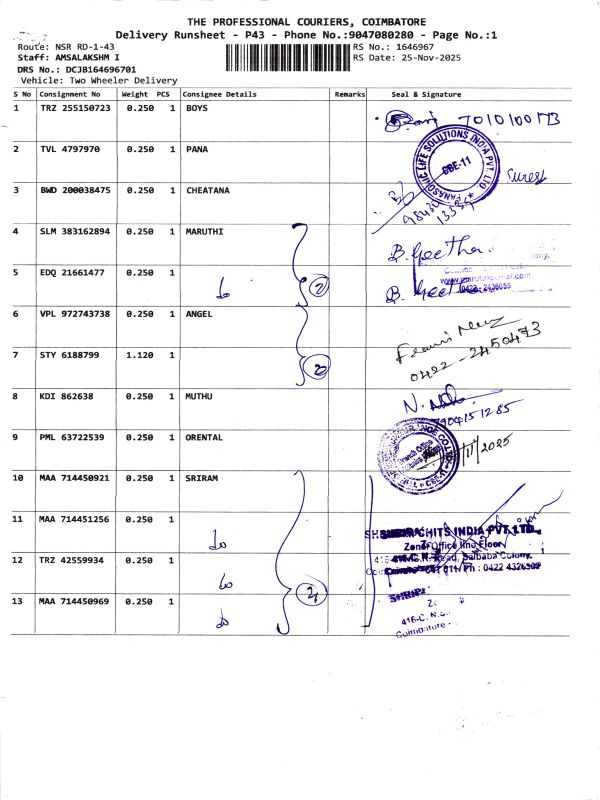 THE PROFESSIONAL COURIERS, COIMBATORE
Delivery Runsheet - P43 - Phone No.:9047080280 - Page No.:1
Route: NSR RD-1-43 RS No.: 1646967
Staff: AMSALAKSHM I RS Date: 25-Nov-2025
DRS No.: DCJB164696701
Vehicle: Two Wheeler Delivery
S No Consignment No Weight PCS Consignee Details Remarks Seal & Signature
1 TRZ 255150723 0.250 1 BOYS 7010100173
2 TVL 4797970 0.250 1 PANA PANASONIC LIFE SOLUTIONS INDIA PVT. LTD. CBE-11 Suresh
3 BWD 200038475 0.250 1 CHEATANA
4 SLM 383162894 0.250 1 MARUTHI B. Geetha
5 EDQ 21661477 0.250 1 do 2 B. Geetha 0422 - 2436056
6 VPL 972743738 0.250 1 ANGEL
7 STY 6188799 1.120 1 2 0422 - 2450473
8 KDI 862638 0.250 1 MUTHU 7904151285
9 PML 63722539 0.250 1 ORENTAL Branch Office /11/2025
10 MAA 714450921 0.250 1 SRIRAM
11 MAA 714451256 0.250 1 do CHITS INDIA PVT. LTD.,
Zonal Office IInd Floor
12 TRZ 42559934 0.250 1 do Road, Saibaba Colony,
Ph : 0422 4326909
13 MAA 714450969 0.250 1 do 4
416-C. N.S.
Coimbatore -